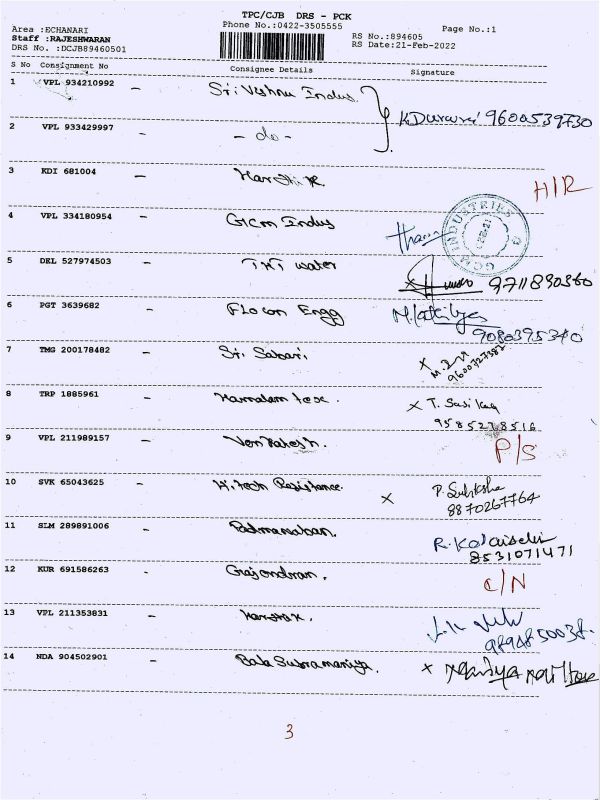 TPC/CJB DRS - PCK
Area :ECHANARI Phone No.:0422-3505555 Page No.:1
Staff :RAJESHWARAN RS No.:894605
DRS No. :DCJB89460501 RS Date:21-Feb-2022
S No Consignment No Consignee Details Signature
1 VPL 934210992 - Sri Vishnu Indus. 9600539730
2 VPL 933429997 - - do -
3 KDI 681004 - H/R
4 VPL 334180954 - GCM Indus GCM INDUSTRIES
5 DEL 527974503 - TNT water 9711890360
6 PGT 3639682 - Flocon Engg 9080395340
7 TMG 200178482 - Sri Sabari. x 9600727382
8 TRP 1885961 - x T. Sasikag 9585278516
9 VPL 211989157 - Venkatesh. P/S
10 SVK 65043625 - Hi.tech Resistance. x 8870267764
11 SLM 289891006 - Padmanaban. R. Kalaiselvi 8531071471
12 KUR 691586263 - Gajendran. C/N
13 VPL 211353831 -
14 NDA 904502901 - Bala Subramaniya. x
3